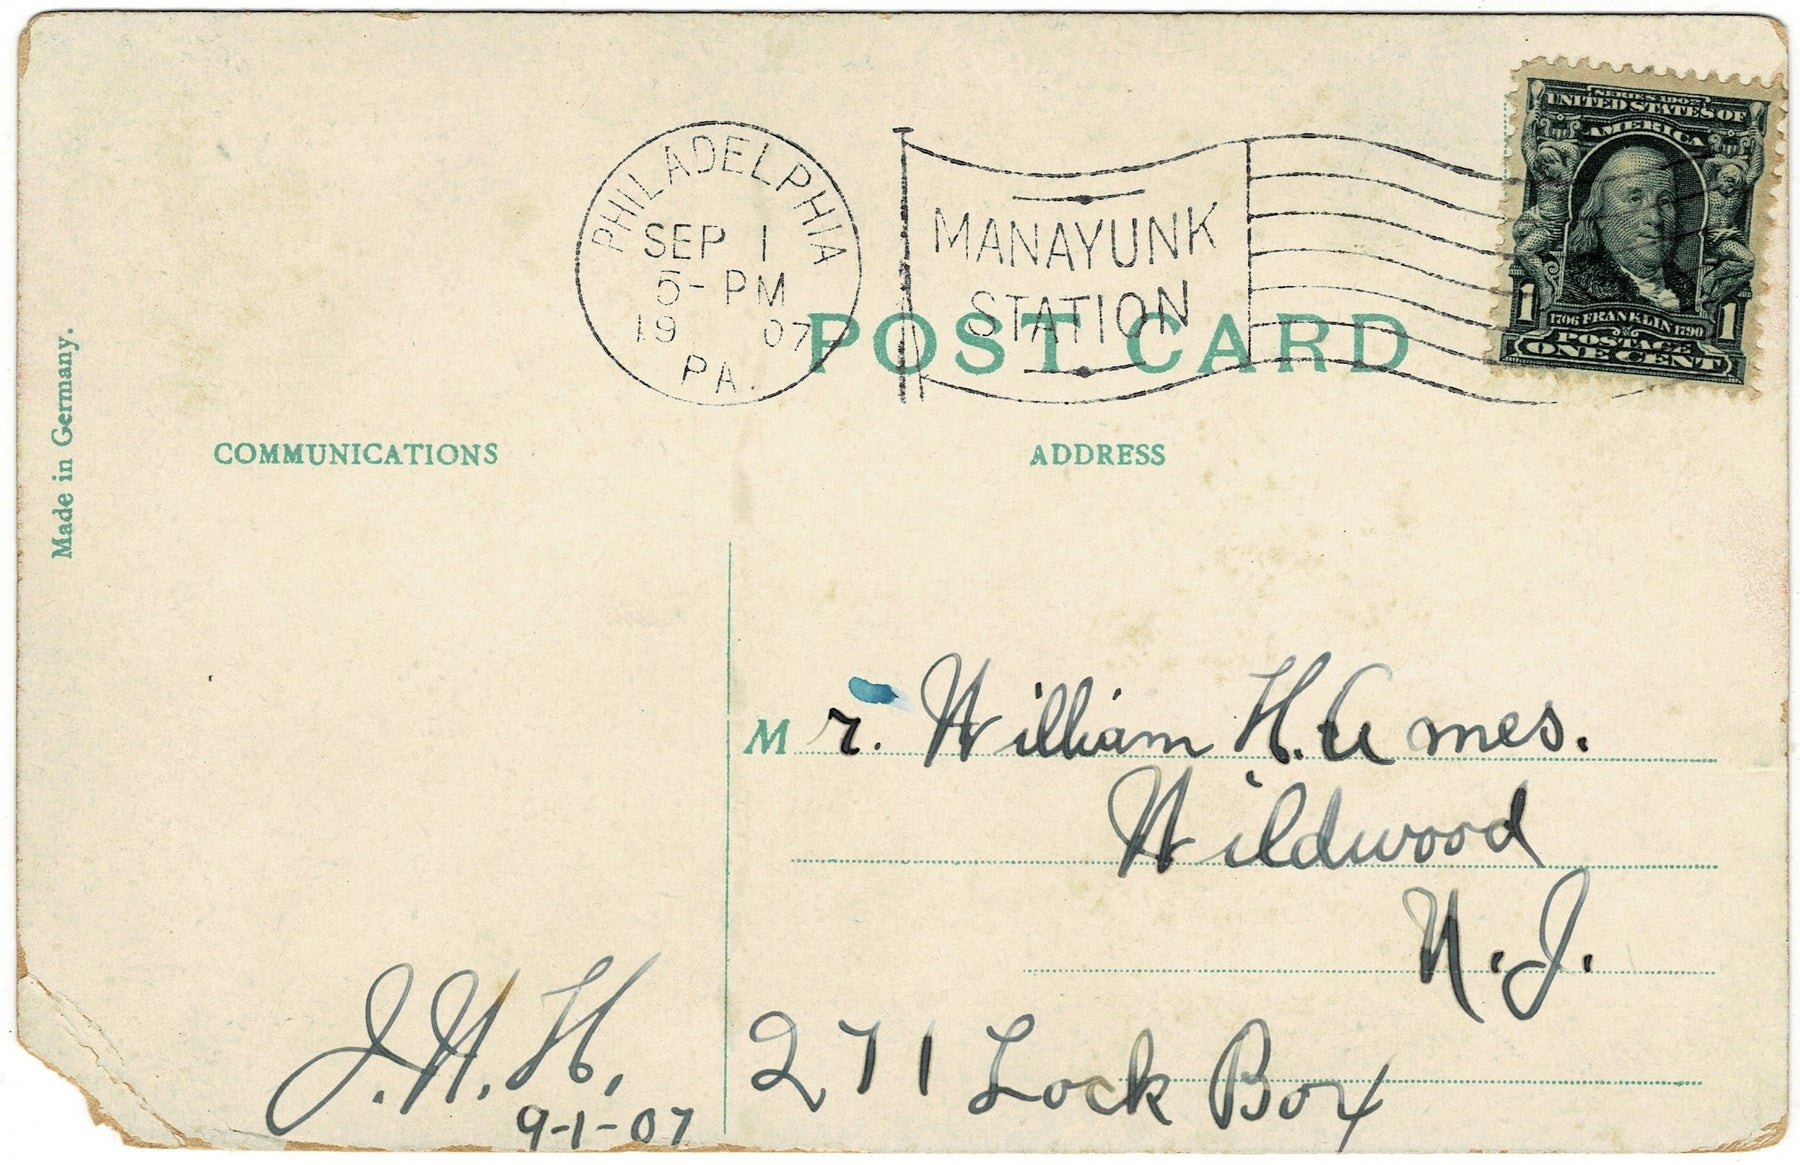 PHILADELPHIA
SEP 1
5-PM
19 07
PA.
MANAYUNK
STATION
SERIES 1902
UNITED STATES OF
AMERICA
1 1
1706 FRANKLIN 1790
POSTAGE
ONE CENT
POST CARD
Made in Germany.
COMMUNICATIONS
ADDRESS
Mr. William H. Ames.
Wildwood
N.J.
271 Lock Box
9-1-07